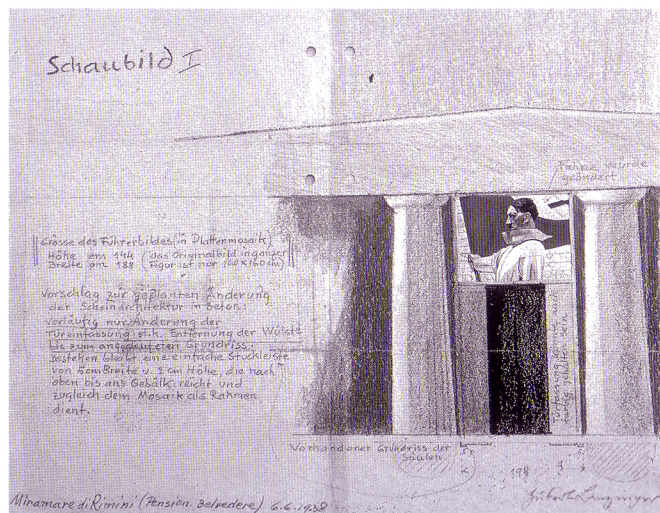 Schaubild I
Fahne wurde
geändert
Grösse des Führerbildes (in Plattenmosaik)
Höhe cm 144 (das Originalbild in ganzer
Breite cm 188 Figur ist nur 160 x 160 cm)
Vorschlag zur geplanten Änderung
der Scheinarchitektur in Beton:
Vorläufig nur Änderung der
Türeinfassung Entfernung der Wülste
bis zum angedeuteten Grundriss.
Bestehen bleibt eine einfache Stuckleiste
von 5 cm Breite u. 2 cm Höhe, die nach
oben bis ans Gebälk reicht und
zugleich dem Mosaik als Rahmen
dient.
Vorhandener Grundriss der
Säulen
Miramare di Rimini (Pension Belvedere) 6.6.1938
Hubert Lanzinger